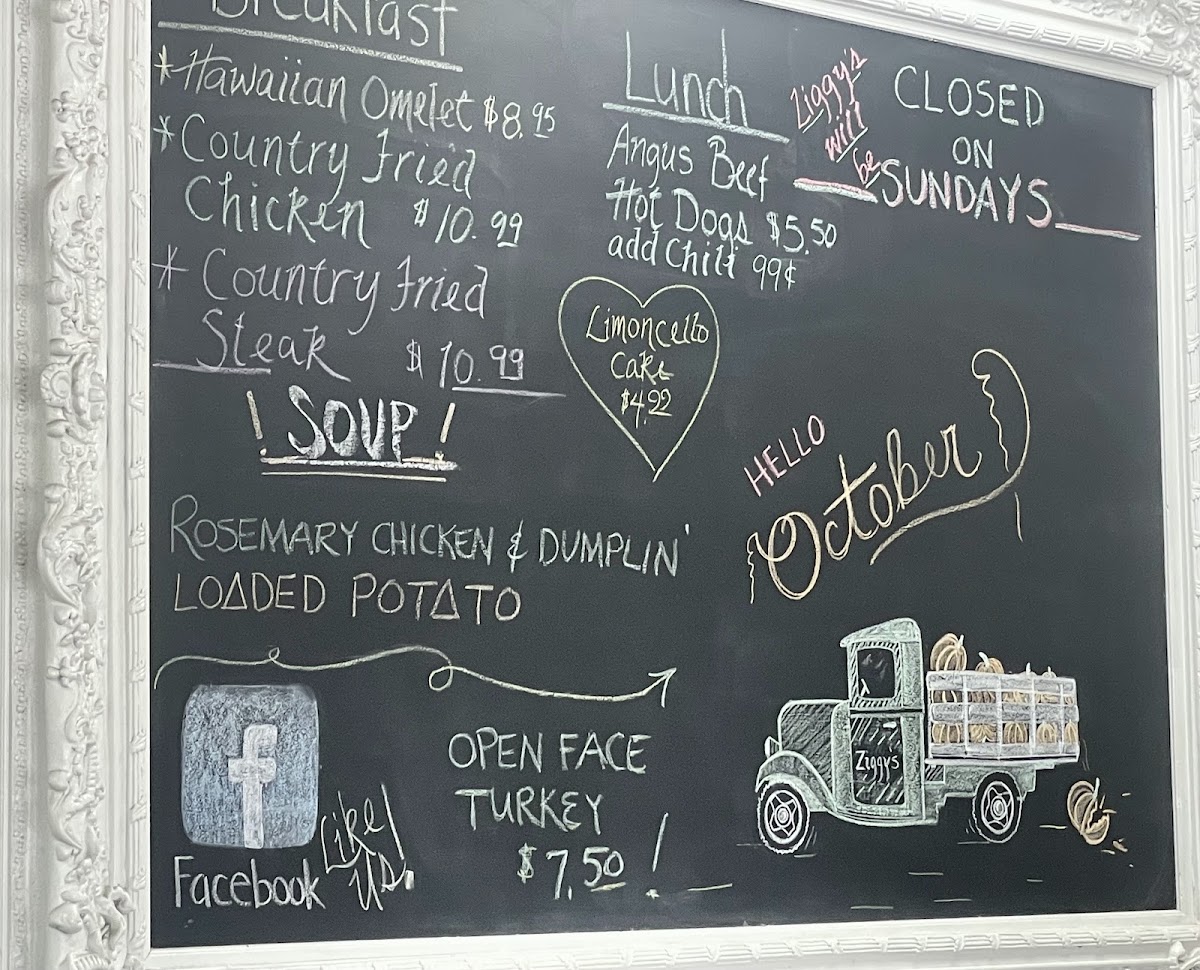 Breakfast
*Hawaiian Omelet $8.95
*Country Fried
Chicken $10.99
* Country Fried
Steak $10.99
! SOUP !
ROSEMARY CHICKEN & DUMPLIN'
LOADED POTATO
Lunch
Angus Beef
Hot Dogs $5.50
add Chili 99¢
Limoncello
Cake
$4.99
Ziggy's
will
be
CLOSED
ON
SUNDAYS
HELLO
October
Ziggys
f
Facebook
Like
US!
OPEN FACE
TURKEY
$7.50 !